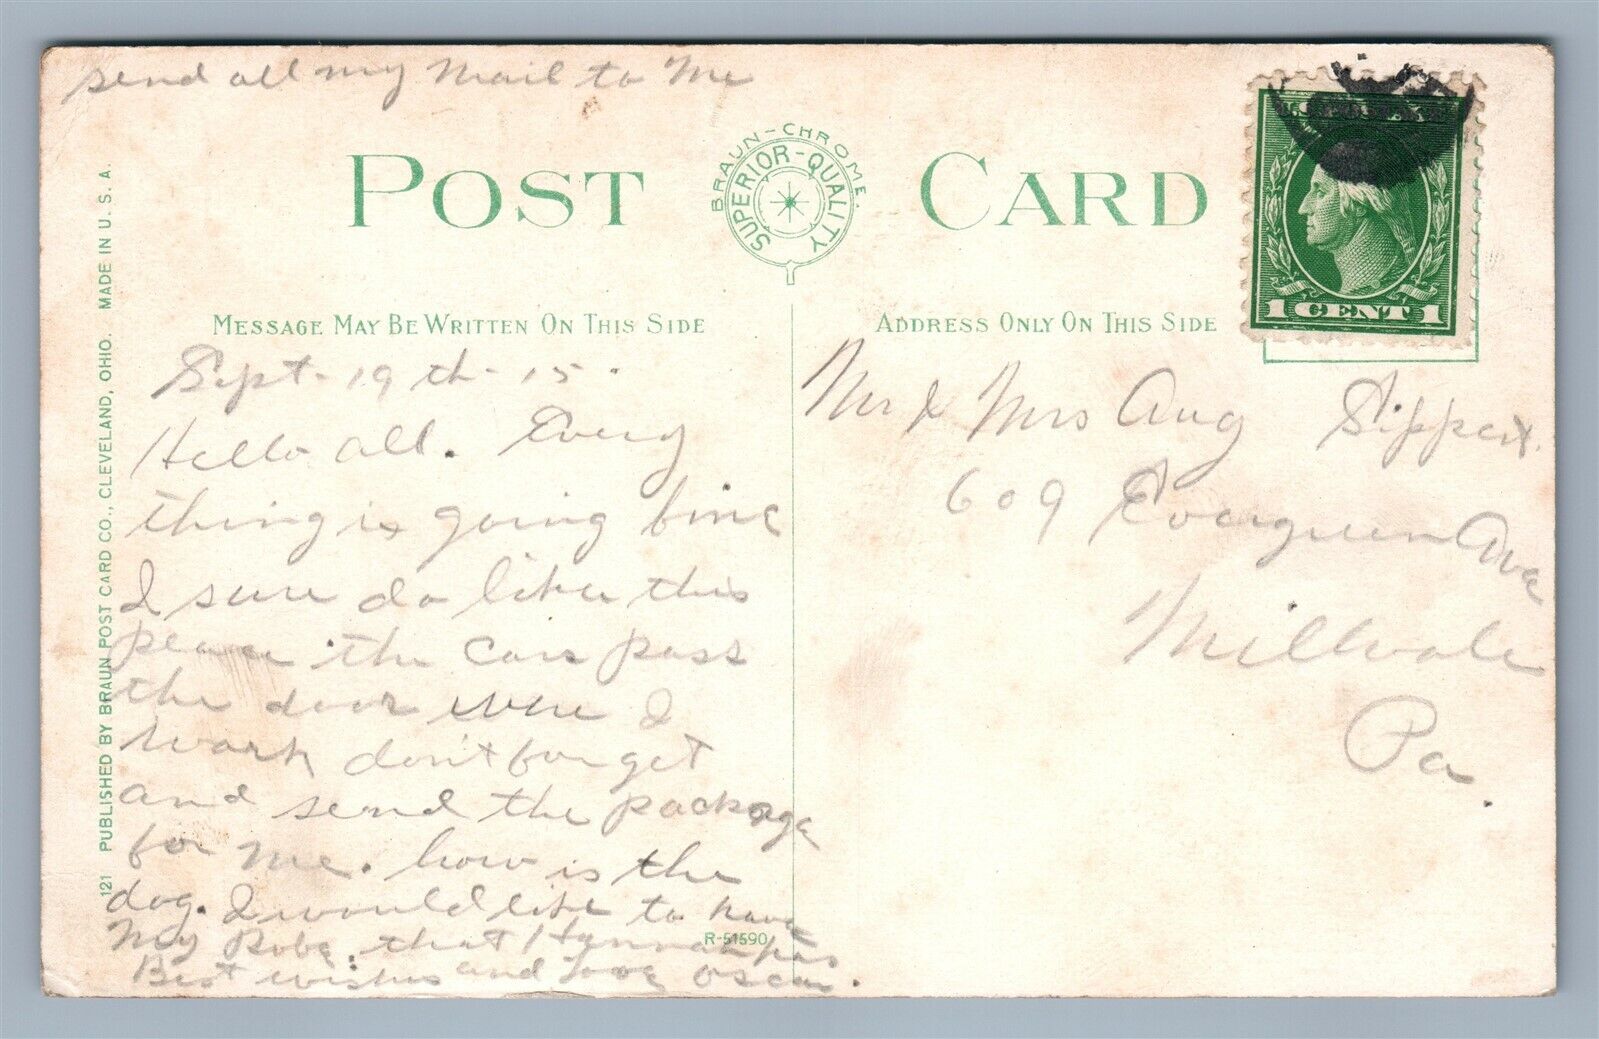 send all my Mail to Me
POST CARD
BRAUN-CHROME.
SUPERIOR-QUALITY
U.S. POSTAGE
1 CENT 1
MESSAGE MAY BE WRITTEN ON THIS SIDE
ADDRESS ONLY ON THIS SIDE
Sept-19th-15.
Hello all. Every
thing is going fine
I sure do like this
place the cars pass
the door were I
work don't forget
and send the package
for me. how is the
dog. I would like to have
My Robe. that Hannah has
Best wishes and Love Oscar.
Mr & Mrs Aug Sippert.
609 Evergreen Ave
Millvale
Pa.
R-51590
121 PUBLISHED BY BRAUN POST CARD CO., CLEVELAND, OHIO. MADE IN U. S. A.